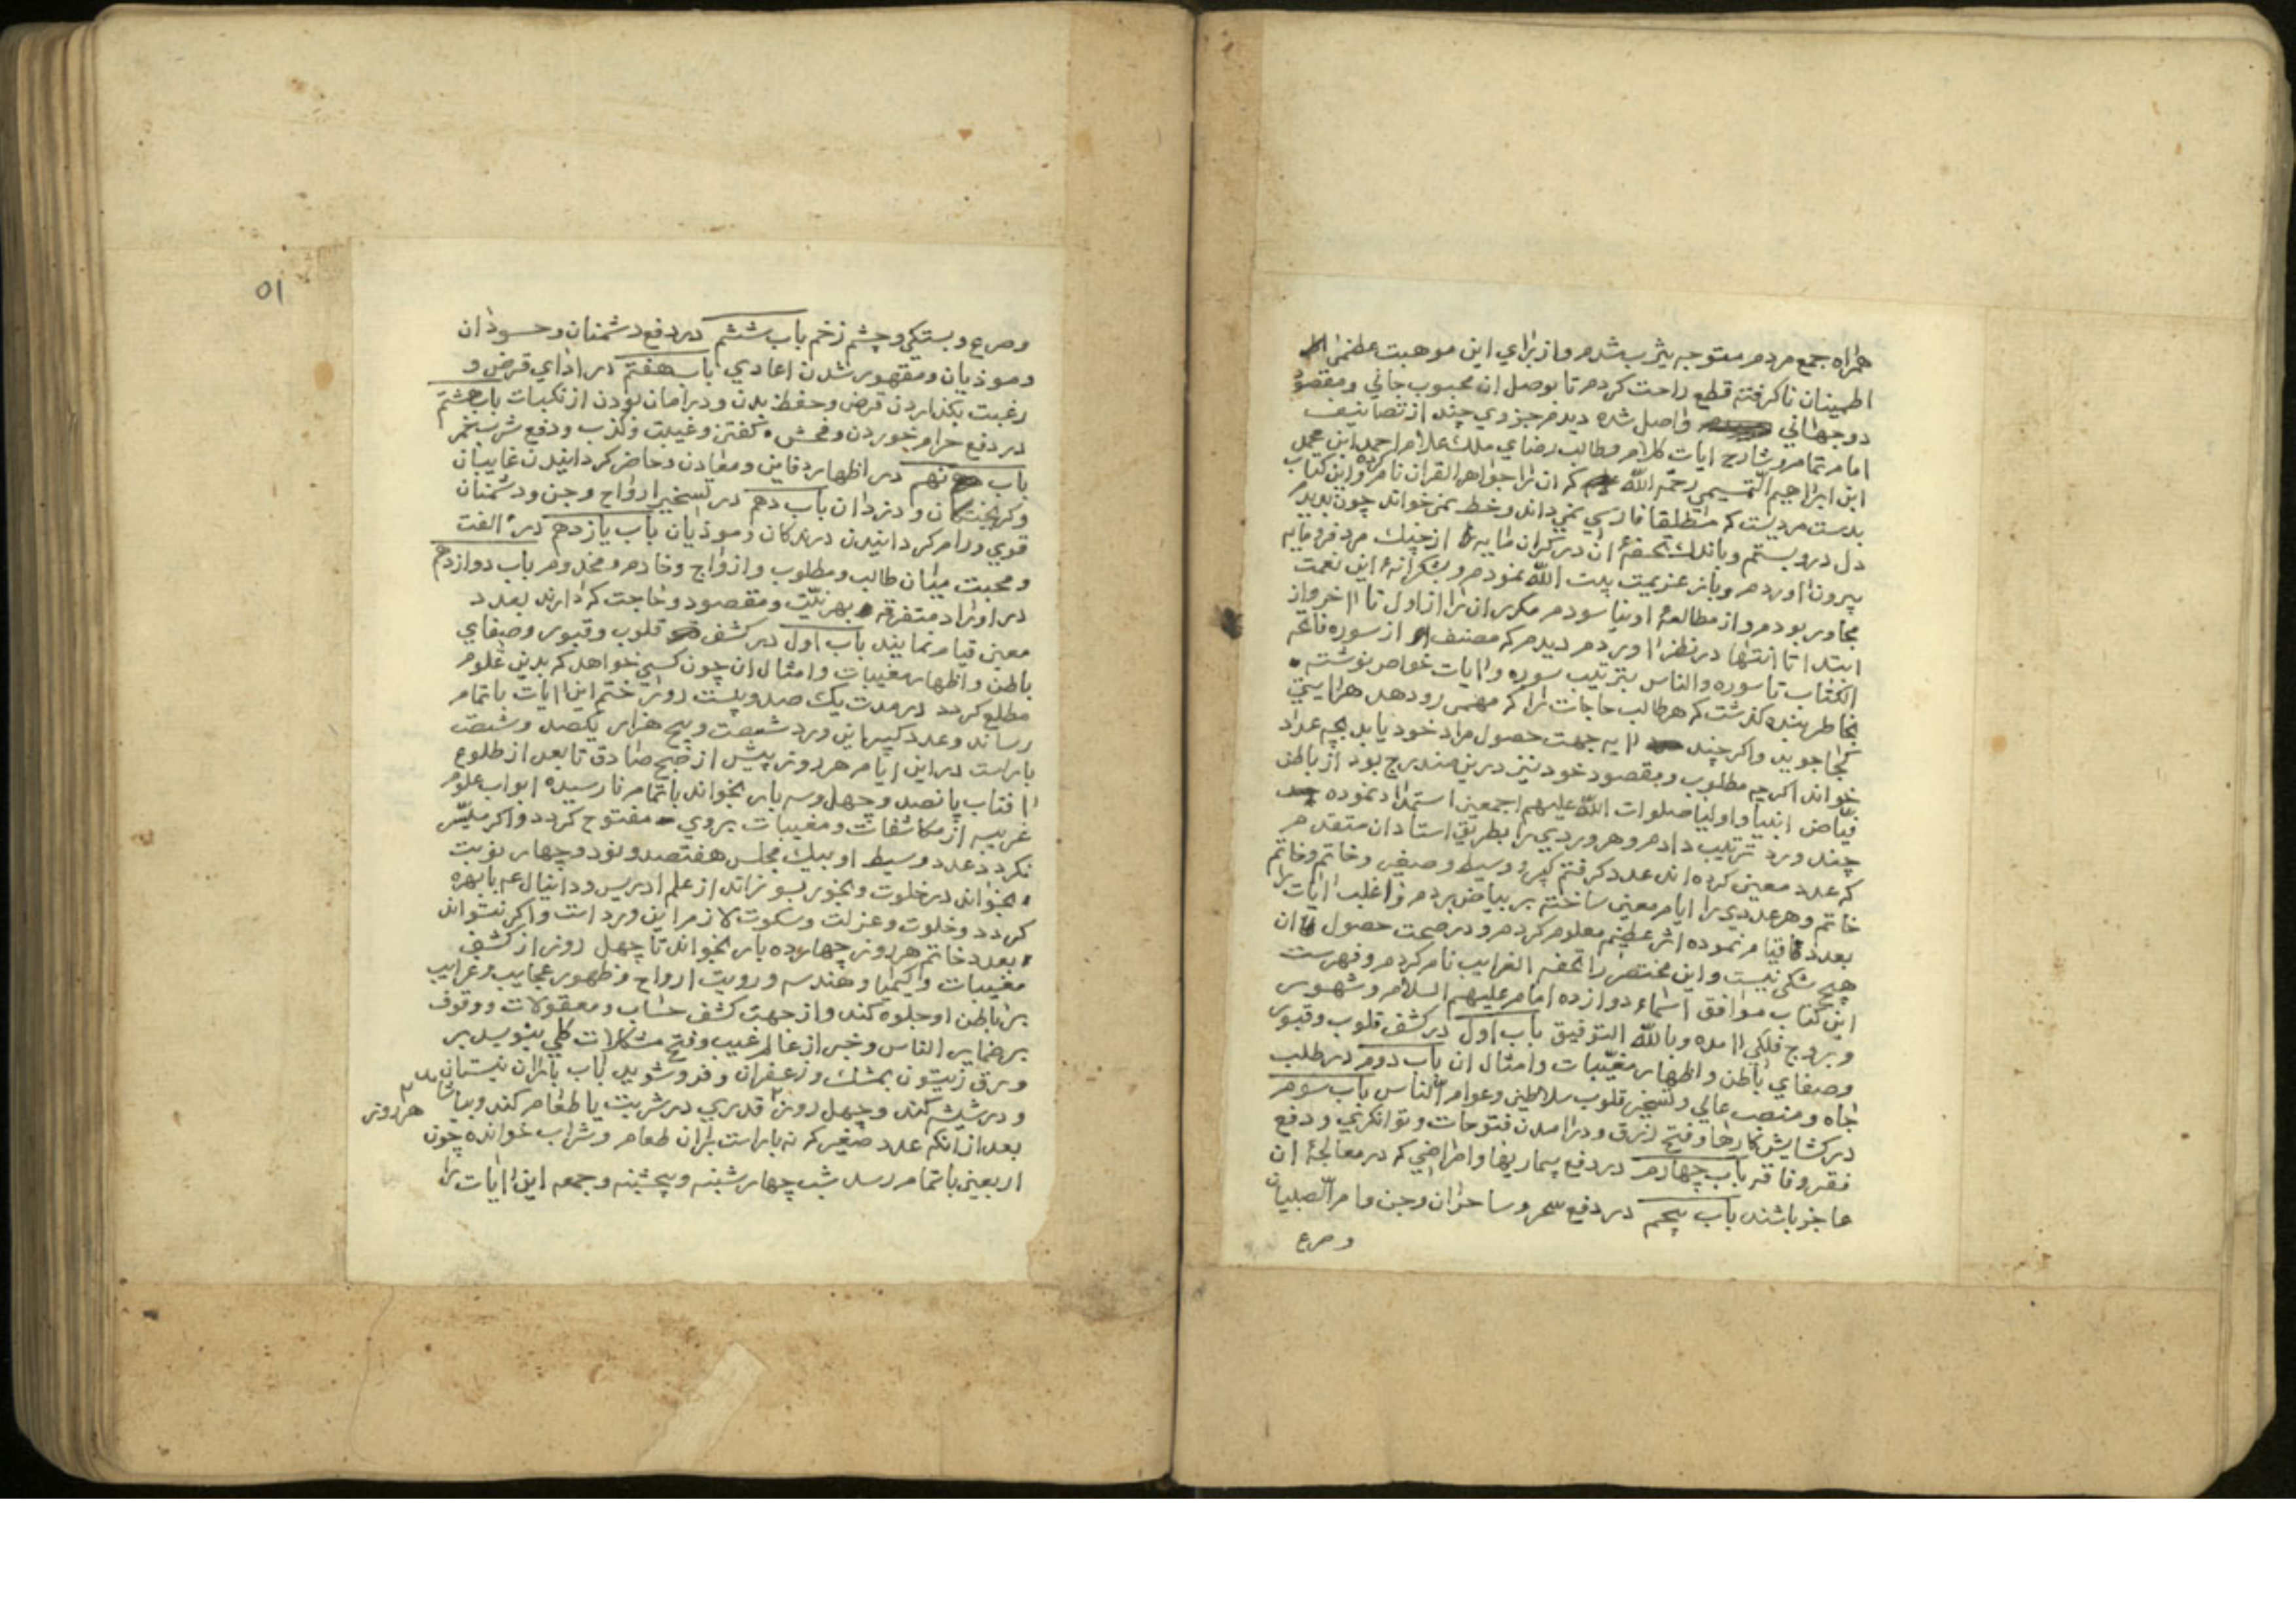 همراه جمع مردم متوجه یثرب شدم و از برای این موهبت عظمی
اطمینان ناگرفته قطع راحت کردم تا بوصل ان محبوب جانی و مقصود
دو جهانی واصل شده دیدم جزوی چند از تصانیف
امام تمام و شارح ایات کلام و طالب رضای ملک علام احمد ابن محمد
ابن ابراهیم التمیمی رحمه الله که ان را جواهر القران نام کرده و این کتاب
بدست مردیست که مطلقا فارسی نمی داند و خط نمی خواند چون بدیدم
دل درو بستم و باندک تحفهٔ ان در کران مایه را از چنک مرد فرومایه
بیرون اوردم و باز عزیمت بیت الله نمودم و بشکرانهٔ این نعمت
مجاور بودم و از مطالعهٔ او نیاسودم مکرر ان را از اول تا اخر و از
ابتدا تا انتها در نظر اوردم دیدم که مصنف از سوره فاتحه
الکتاب تا سوره والناس بترتیب سوره و ایات خواص نوشته
بخاطر بنده کذشت که هر طالب حاجات را که مهمی رو دهد هر ایینه
کجا جوید و اکر چند ایه جهت حصول مراد خود یابد بچه عداد
خواند اکرچه مطلوب و مقصود خود نیز درین مندرج بود از باطن
فیاض انبیا و اولیا صلوات الله علیهم اجمعین استمداد نموده
چند ورد ترتیب دادم و هر وردی را بطریق استادان متقدم
که عدد معین کرده اند عدد کرفتم کبیر و وسیط و صغیر و خاتم و خاتم
خاتم و هر عددی را ایام معین ساخته بر بیاض بردم و اغلب ایات را
بعدد قیام نموده اثر عظیم معلوم کردم و در صحت حصول ان
هیچ شکی نیست و این مختصر را تحفه الغرایب نام کردم و فهرست
این کتاب موافق اسماء دوازده امام علیهم السلام و شهور
و بروج فلکی امده و بالله التوفیق باب اول در کشف قلوب و قبور
و صفای باطن و اظهار مغیبات و امثال ان باب دوم در طلب
جاه و منصب عالی و تسخیر قلوب سلاطین و عوام الناس باب سوم
در کشایش کارها و فتح رزق و درامدن فتوحات و توانکری و دفع
فقر و فاقه باب چهارم در دفع بیماریها و امراضی که در معالجهٔ ان
عاجز باشند باب پنجم در دفع سحر و ساحران و جن و ام الصبیان
و صرع
٥١
و صرع و بستکی و چشم زخم باب ششم در دفع دشمنان و حسودان
و موذیان و مقهور شدن اعادی باب هفتم در ادای قرض و
رغبت بکذاردن قرض و حفظ بدن و در امان بودن از نکبات باب هشتم
در دفع حرام خوردن و فحش کفتن و غیبت و کذب و دفع شرب خمر
باب نهم در اظهار دفاین و معادن و حاضر کردانیدن غایبان
و کریختکان و دزدان باب دهم در تسخیر ارواح و جن و دشمنان
قوی و رام کردانیدن درندکان و موذیان باب یازدهم در الفت
و محبت میان طالب و مطلوب و ازواج و خادم و مخدوم باب دوازدهم
در اوراد متفرقه بهر نیت و مقصود و حاجت که دارند بعدد
معین قیام نمایند باب اول در کشف قلوب و قبور و صفای
باطن و اظهار مغیبات و امثال ان چون کسی خواهد که بدین علوم
مطلع کردد در مدت یک صد و بیست روز ختم این ایات باتمام
رساند و عدد کبیر این ورد شصت و پنج هزار یکصد و شصت
بار است در این ایام هر روز پیش از صبح صادق تا بعد از طلوع
افتاب پانصد و چهل و سه بار بخواند باتمام نارسیده ابواب علوم
غریبه از مکاشفات و مغیبات بروی مفتوح کردد و اکر میسر
نکردد عدد وسیط او بیک مجلس هفتصد و نود و چهار نوبت
بخواند در خلوت و بخور بسوزاند از علم ادریس و دانیال عم بابهره
کردد و خلوت و عزلت و سکوت لازم این ورد است و اکر نتواند
بعدد خاتم هر روز چهارده بار بخواند تا چهل روز از کشف
مغیبات و کیمیا و هندسه و رویت ارواح و ظهور عجایب و غرایب
بر باطن او جلوه کند و از جهت کشف حساب و معقولات و وقوف
بر ضمایر الناس و خبر از عالم غیب و فتح مشکلات کلی بنویسد بر
ورق زیتون بمشک و زعفران و فرو شوید باب باران نیسان
و در شیشه کند و چهل روز قدری در شربت یا طعام کند و بیاشامد هر روز
بعد از انکه عدد صغیر که نه بار است بران طعام و شراب خوانده چون
اربعین باتمام رسد شب چهارشنبه و پنجشنبه و جمعه این ایات را